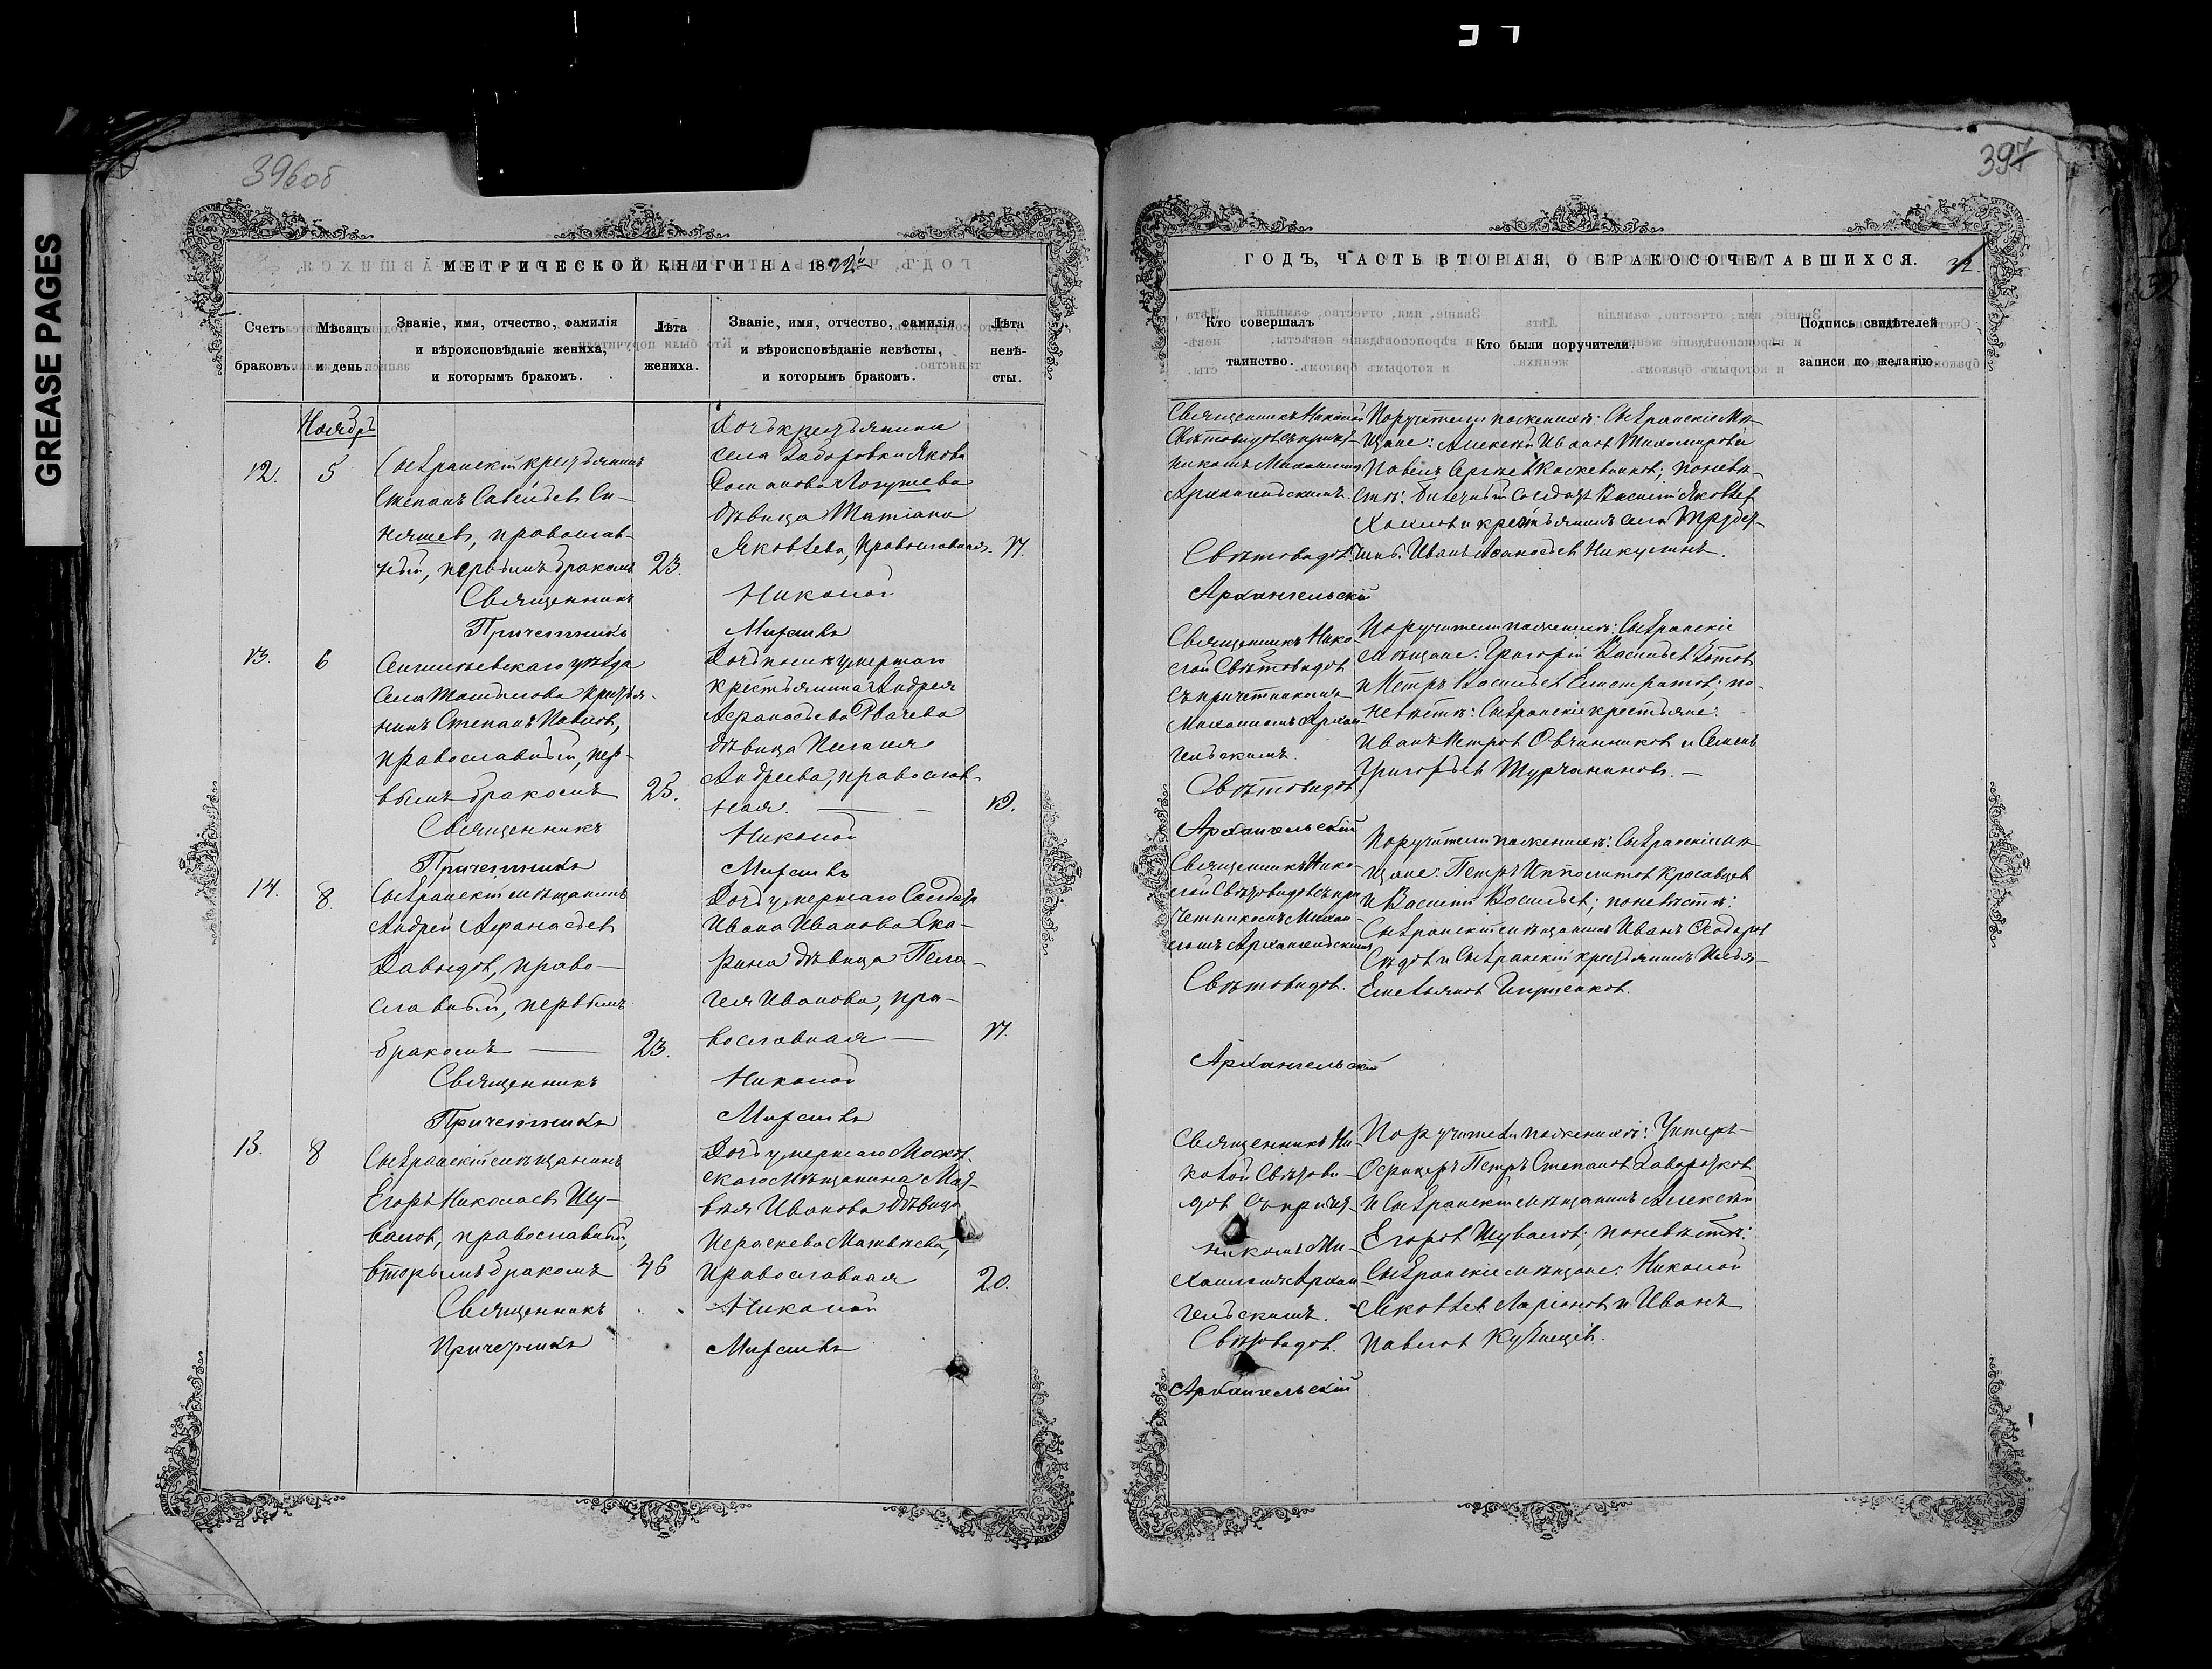 GREASE PAGES
396об
МЕТРИЧЕСКОЙ КНИГИ НА 1872й
Счетъ браковъ.
Мѣсяцъ и день.
Званіе, имя, отчество, фамилія и вѣроисповѣданіе жениха, и которымъ бракомъ.
Лѣта жениха.
Званіе, имя, отчество, фамилія и вѣроисповѣданіе невѣсты, и которымъ бракомъ.
Лѣта невѣ-
сты.
Ноябрь
12.
5
Сызранскій крестьянинъ
Степанъ Савельев Си-
няшев, православ-
ный, первымъ бракомъ
23.
Дочь крестьянина
села Заборовки Якова
дѣвица Татіана
Яковлева, Православная.
17.
Священникъ
Николай
Причетникъ
Михаилъ
13.
6
Сенгилѣевскаго уѣзда
Села крестья-
нинъ Степанъ Павлов,
православный, пер-
вымъ бракомъ
25.
Дочь умершаго
крестьянина Андрея
Афанасьева Рвачева
дѣвица Пелагия
Андреева, православ-
ная.
19.
Священникъ
Николай
Причетникъ
Михаилъ
14.
8.
Сызранскій мѣщанинъ
Андрей Афанасьев
Давыдов, право-
славный, первымъ
бракомъ
23.
Дочь умершаго Солдата
Ивана Иванова Ска-
рина дѣвица Пела-
гея Иванова, пра-
вославная
17.
Священникъ
Николай
Причетникъ
Михаилъ
15.
8
Сызранскій мѣщанинъ
Егоръ Николаев Шу-
валов, православный,
вторымъ бракомъ
46
Дочь умершаго Москов-
скаго мѣщанина Мат-
вѣя Иванова дѣвица
Параскева Матвѣева,
православная
20.
Священникъ
Николай
Причетникъ
Михаилъ
397
ГОДЪ, ЧАСТЬ ВТОРАЯ, О БРАКОСОЧЕТАВШИХСЯ.
32.
Кто совершалъ таинство.
Кто были поручители.
Подпись свидѣтелей записи по желанію.
Священникъ Николай
Свѣтовидов съ причет-
никомъ Михаиломъ
Архангельскимъ.
Свѣтовидов.
Архангельскій
Поручители по женихѣ: Сызранскіе Мѣ-
щане: Алексѣй Иванов Тихомиров и
Павелъ Сергѣев Кожевников; по невѣ-
стѣ: билетный солдатъ Василій Яковлев
Хохлов и крестьянинъ села Трубет-
чины Иванъ Афанасьев Никулинъ.
Священникъ Нико-
лай Свѣтовидов
съ причетникомъ
Михаиломъ Архан-
гельскимъ.
Свѣтовидов
Архангельскій
Поручители по женихѣ: Сызранскіе
мѣщане: Григорій Васильев Зотов
и Петръ Васильев Елистратов; по-
невѣстѣ: Сызранскіе крестьяне:
Иванъ Петров Овчинников и Семенъ
Григорьев Турчанинов.
Священникъ Нико-
лай Свѣтовидов съ при
четникомъ Михаи-
ломъ Архангельскимъ
Свѣтовидов.
Архангельскій
Поручители по женихѣ: Сызранскіе мѣ
щане: Петръ Ипполитов Красавцев
и Василій Васильев; по невѣстѣ:
Сызранскій мѣщанинъ Иванъ Ѳеодоров
Сѣдов и Сызранскій крестьянинъ Илья
Емельянов
Священникъ Ни-
колай Свѣтови-
дов съ причет-
никомъ Ми-
хаиломъ Архан
гельскимъ.
Свѣтовидов.
Архангельскій
Поручители по женихѣ: Унтеръ-
Офицеръ Петръ Степанов
и Сызранскій мѣщанинъ Алексѣй
Егоров Шувалов; по невѣстѣ:
Сызранскіе мѣщане: Николай
Яковлев Ларіонов и Иванъ
Павлов Кузнецов.